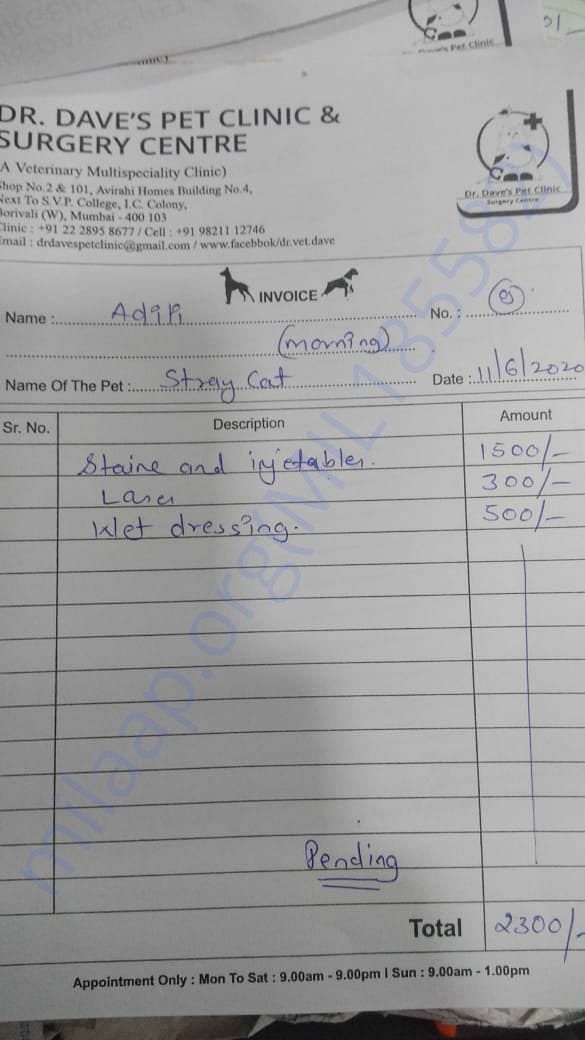 Dr. Dave's Pet Clinic
DR. DAVE'S PET CLINIC &
SURGERY CENTRE
A Veterinary Multispeciality Clinic)
Shop No.2 & 101, Avirahi Homes Building No.4,
Next To S.V.P. College, I.C. Colony,
Borivali (W), Mumbai - 400 103
Clinic : +91 22 2895 8677 / Cell : +91 98211 12746
Email : drdavespetclinic@gmail.com / www.facebbok/dr.vet.dave
Dr. Dave's Pet Clinic
Surgery Centre
INVOICE
Name : No. :
(morning)
Name Of The Pet : Stray Cat Date : 11/6/2020
Sr. No. Description Amount
and 1500/-
300/-
Wet dressing. 500/-
Pending
Total 2300/-
Appointment Only : Mon To Sat : 9.00am - 9.00pm I Sun : 9.00am - 1.00pm
milaap.org(MIL185582)